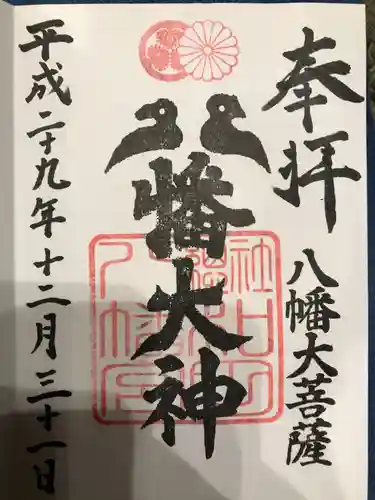 奉拝
八幡大菩薩
八幡大神
平成二十九年十二月三十一日